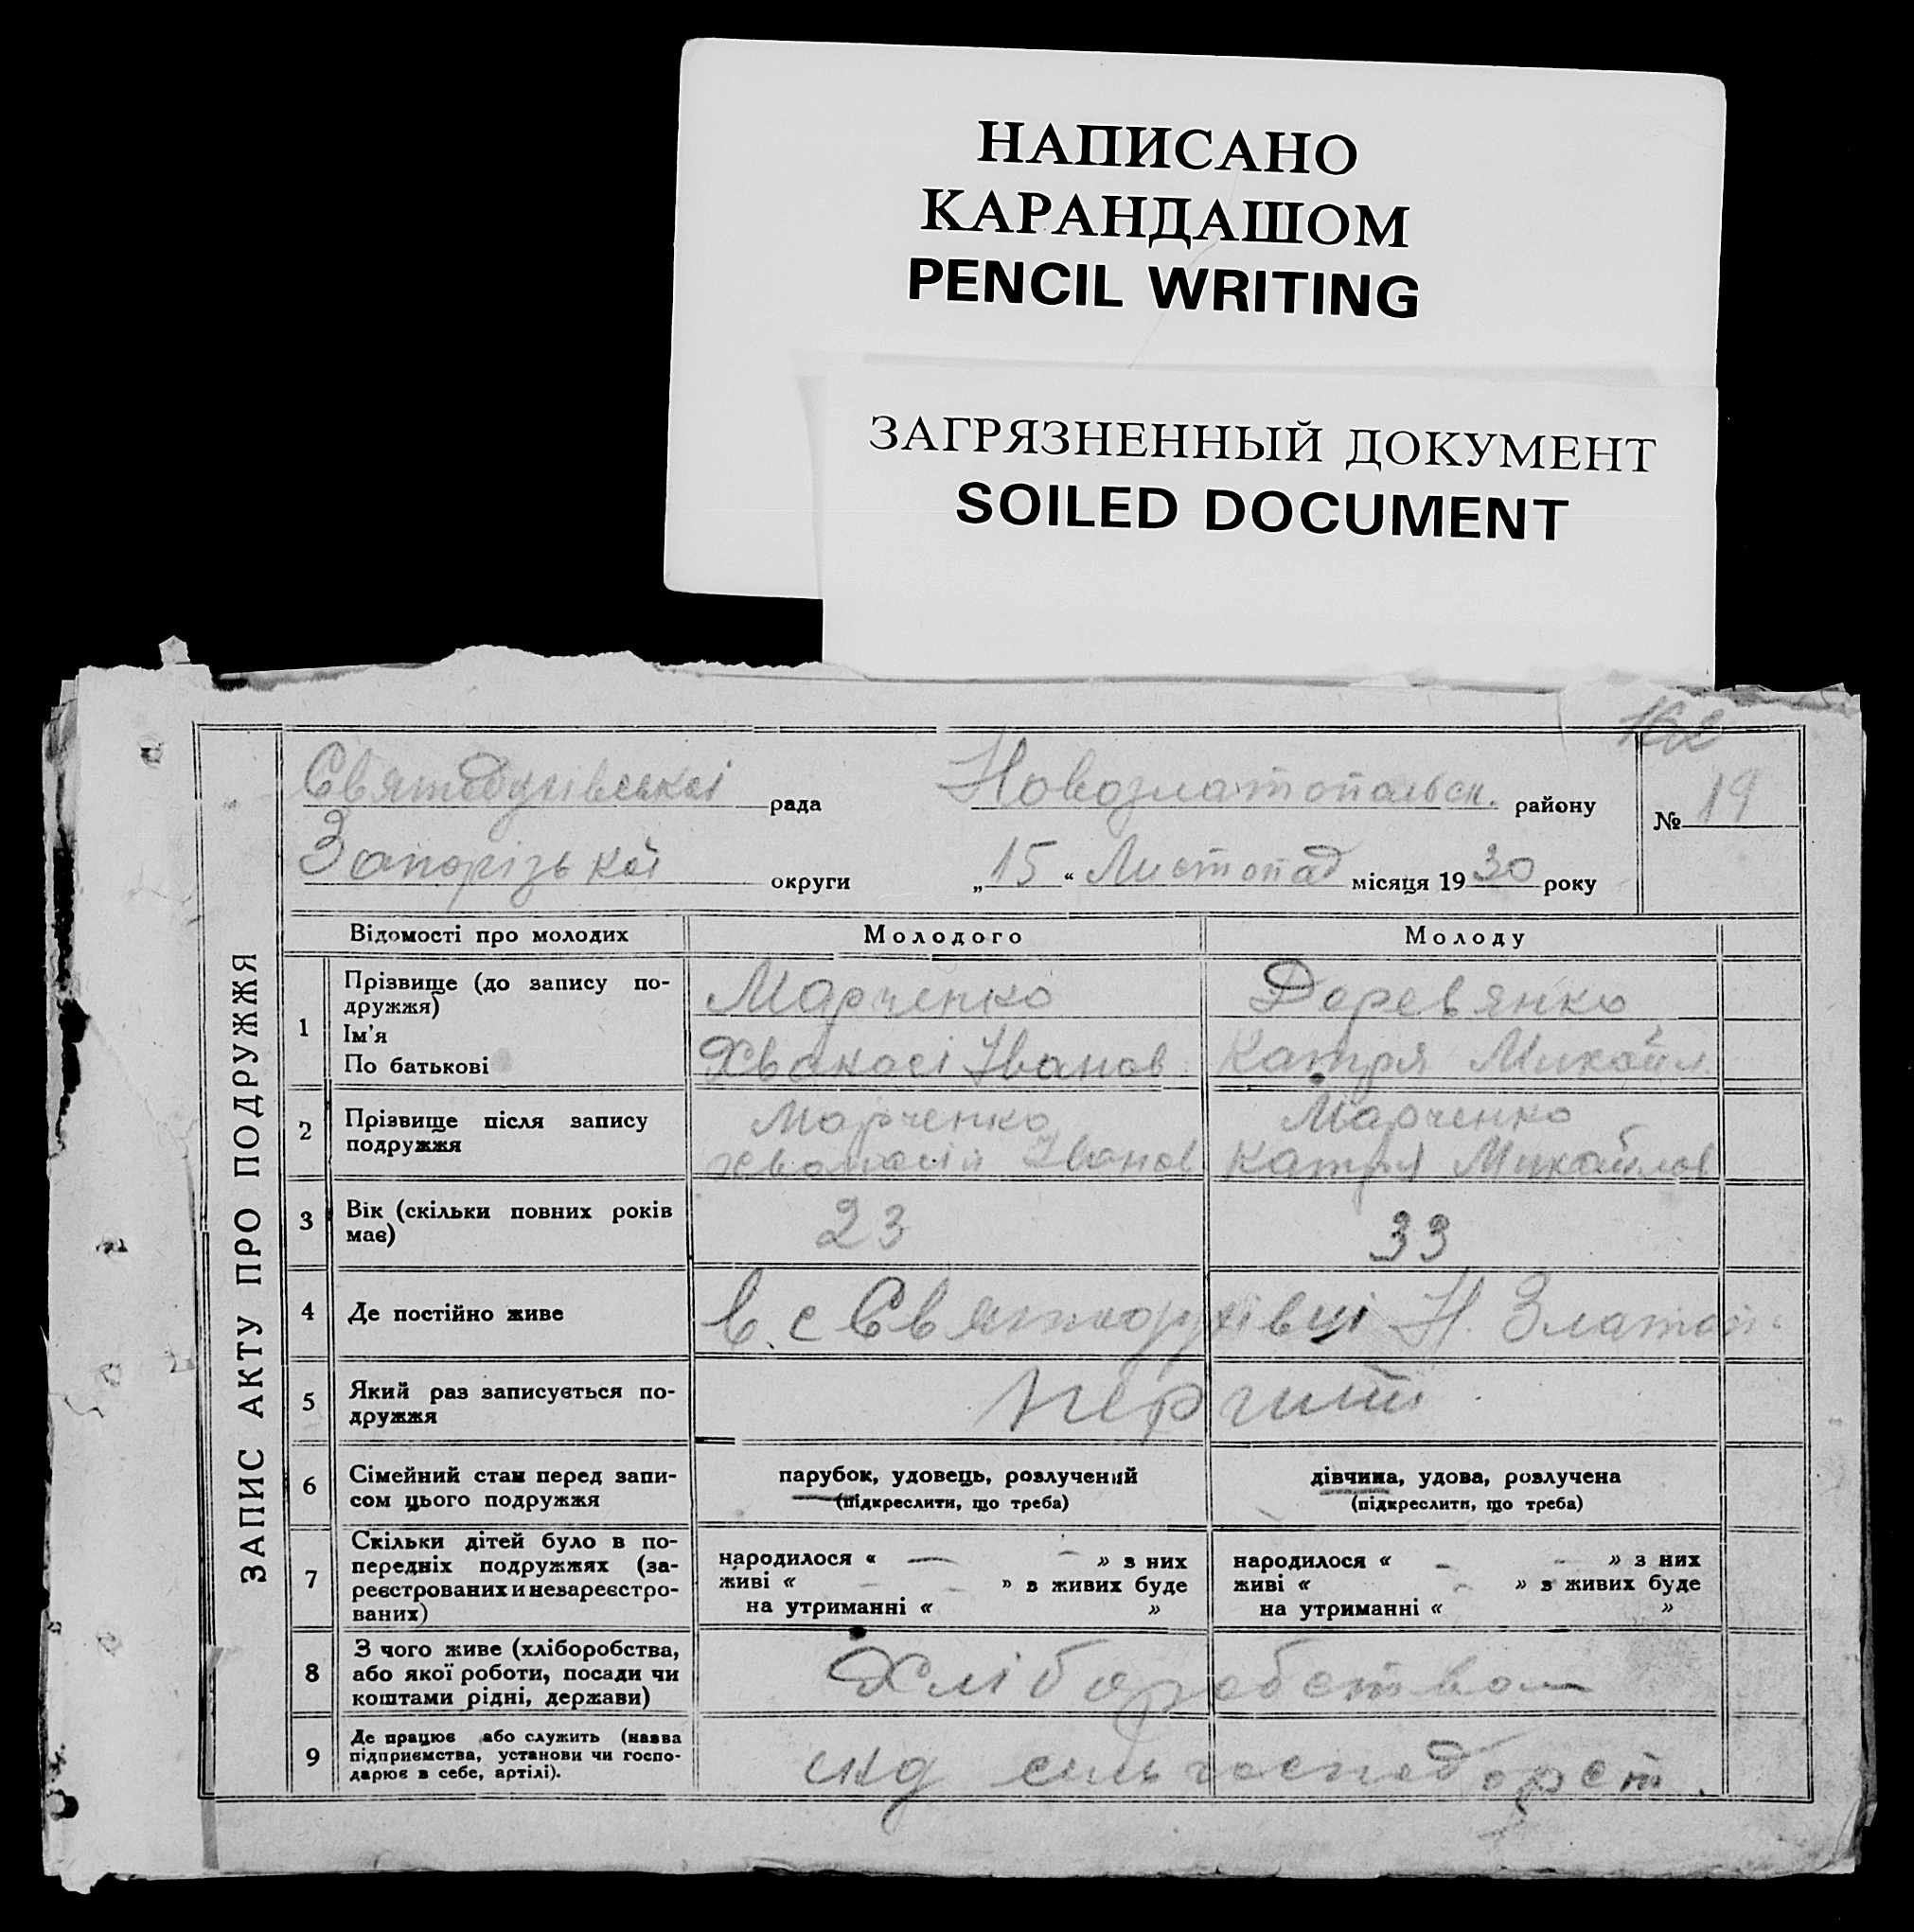 НАПИСАНО
КАРАНДАШОМ
PENCIL WRITING
ЗАГРЯЗНЕННЫЙ ДОКУМЕНТ
SOILED DOCUMENT
ЗАПИС АКТУ ПРО ПОДРУЖЖЯ
рада Новозлатопольск. району № 19
Запорізької округи „15“ Листопад місяця 1930 року
Відомості про молодих Молодого Молоду
1 Прізвище (до запису по-
дружжя) Марченко Деревянко
Ім'я
По батькові Хванасі Іванов Катря Михайл.
2 Прізвище після запису
подружжя Марченко Марченко
Хванасій Іванов Катря Михайлов
3 Вік (скільки повних років
має) 23 33
4 Де постійно живе в. с Н. Златоп.
5 Який раз записується по-
дружжя перший
6 Сімейний стан перед запи-
сом цього подружжя парубок, удовець, розлучений дівчина, удова, розлучена
(підкреслити, що треба) (підкреслити, що треба)
7 Скільки дітей було в по-
передніх подружжях (за-
реєстрованих и незареєстро-
ваних)
народилося « — — » з них народилося « — — » з них
живі « — — » в живих буде живі « - » в живих буде
на утриманні « » на утриманні « »
8 З чого живе (хліборобства,
або якої роботи, посади чи
коштами рідні, держави) Хліборобством
9 Де працює або служить (назва
підприємства, установи чи госпо-
дарює в себе, артілі). инд